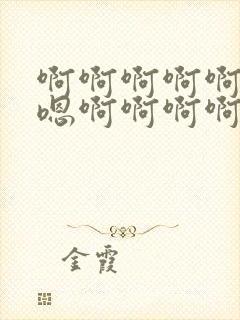 啊啊啊啊啊
嗯啊啊啊啊
金霞